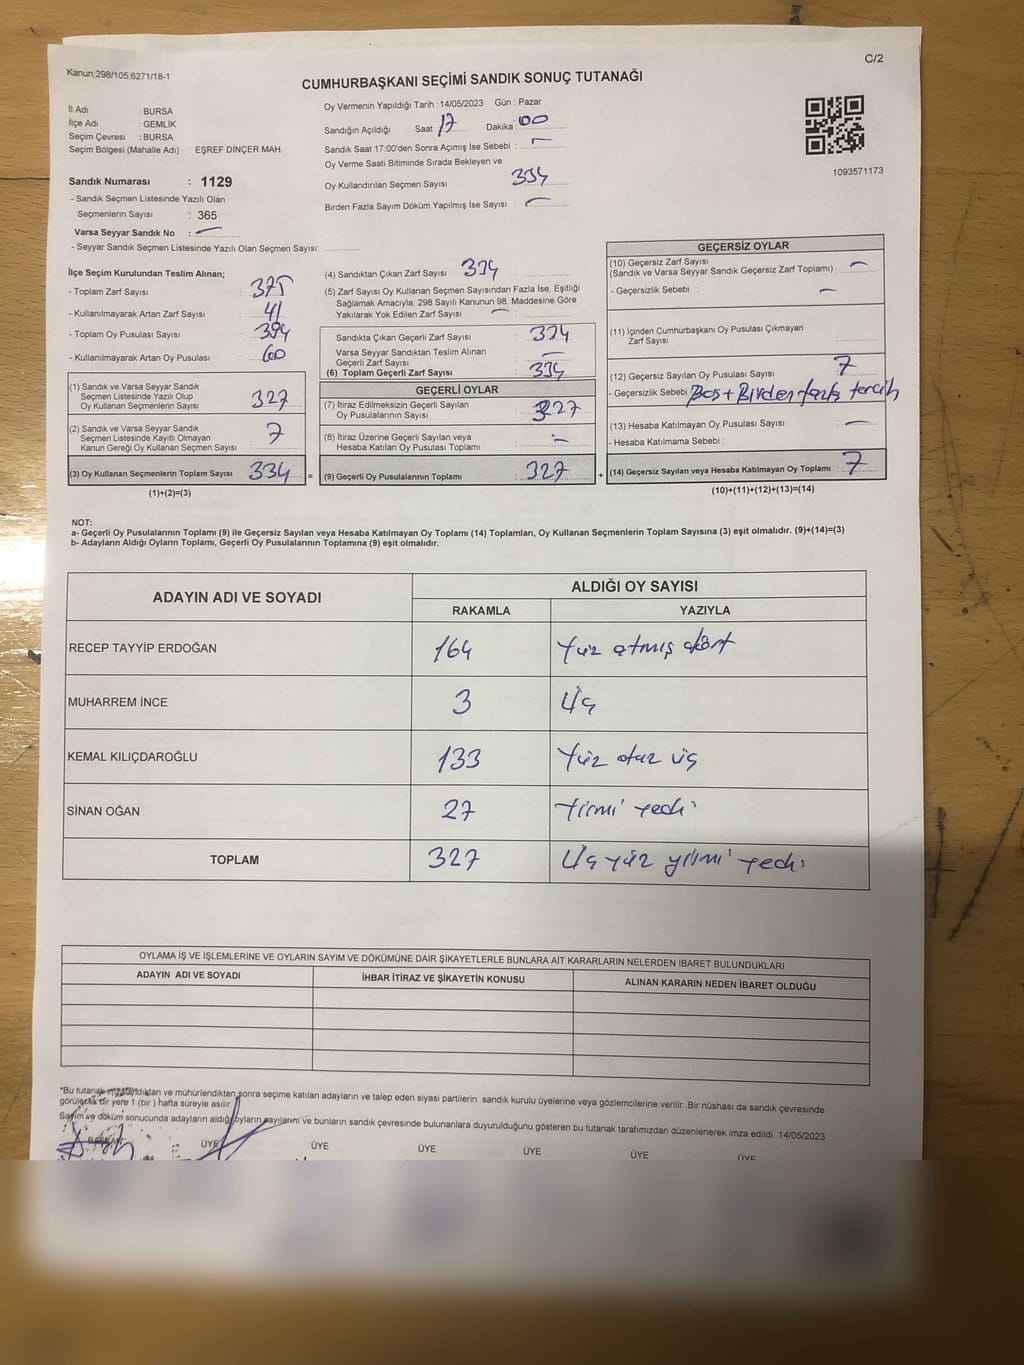 Kanun;298/105;6271/18-1
C/2
CUMHURBAŞKANI SEÇİMİ SANDIK SONUÇ TUTANAĞI
İl Adı : BURSA
İlçe Adı : GEMLİK
Seçim Çevresi : BURSA
Seçim Bölgesi (Mahalle Adı) : EŞREF DİNÇER MAH
Sandık Numarası : 1129
- Sandık Seçmen Listesinde Yazılı Olan
Seçmenlerin Sayısı : 365
Varsa Seyyar Sandık No : —
- Seyyar Sandık Seçmen Listesinde Yazılı Olan Seçmen Sayısı:
Oy Vermenin Yapıldığı Tarih :14/05/2023 Gün : Pazar
Sandığın Açıldığı Saat 17 Dakika : 00
Sandık Saat 17:00'den Sonra Açımış İse Sebebi : —
Oy Verme Saati Bitiminde Sırada Bekleyen ve
Oy Kullandırılan Seçmen Sayısı 334
Birden Fazla Sayım Döküm Yapılmış İse Sayısı : —
1093571173
İlçe Seçim Kurulundan Teslim Alınan;
- Toplam Zarf Sayısı : 375
- Kullanılmayarak Artan Zarf Sayısı : 41
- Toplam Oy Pusulası Sayısı : 394
- Kullanılmayarak Artan Oy Pusulası : 60
(1) Sandık ve Varsa Seyyar Sandık
Seçmen Listesinde Yazılı Olup
Oy Kullanan Seçmenlerin Sayısı 327
(2) Sandık ve Varsa Seyyar Sandık
Seçmen Listesinde Kayıtlı Olmayan
Kanun Gereği Oy Kullanan Seçmen Sayısı : 7
(3) Oy Kullanan Seçmenlerin Toplam Sayısı 334 =
(1)+(2)=(3)
(4) Sandıktan Çıkan Zarf Sayısı : 334
(5) Zarf Sayısı Oy Kullanan Seçmen Sayısından Fazla İse, Eşitliği
Sağlamak Amacıyla; 298 Sayılı Kanunun 98. Maddesine Göre
Yakılarak Yok Edilen Zarf Sayısı : —
Sandıkta Çıkan Geçerli Zarf Sayısı : 334
Varsa Seyyar Sandıktan Teslim Alınan
Geçerli Zarf Sayısı : —
(6) Toplam Geçerli Zarf Sayısı : 334
GEÇERLİ OYLAR
(7) İtiraz Edilmeksizin Geçerli Sayılan
Oy Pusulalarının Sayısı : 327
(8) İtiraz Üzerine Geçerli Sayılan veya
Hesaba Katılan Oy Pusulası Toplamı : —
(9) Geçerli Oy Pusulalarının Toplamı : 327 +
GEÇERSİZ OYLAR
(10) Geçersiz Zarf Sayısı
(Sandık ve Varsa Seyyar Sandık Geçersiz Zarf Toplamı) : —
- Geçersizlik Sebebi : —
(11) İçinden Cumhurbaşkanı Oy Pusulası Çıkmayan
Zarf Sayısı :
(12) Geçersiz Sayılan Oy Pusulası Sayısı : 7
- Geçersizlik Sebebi : Boş + Birden fazla tercih
(13) Hesaba Katılmayan Oy Pusulası Sayısı : —
- Hesaba Katılmama Sebebi :
(14) Geçersiz Sayılan veya Hesaba Katılmayan Oy Toplamı : 7
(10)+(11)+(12)+(13)=(14)
NOT:
a- Geçerli Oy Pusulalarının Toplamı (9) ile Geçersiz Sayılan veya Hesaba Katılmayan Oy Toplamı (14) Toplamları, Oy Kullanan Seçmenlerin Toplam Sayısına (3) eşit olmalıdır. (9)+(14)=(3)
b- Adayların Aldığı Oyların Toplamı, Geçerli Oy Pusulalarının Toplamına (9) eşit olmalıdır.
ADAYIN ADI VE SOYADI ALDIĞI OY SAYISI
RAKAMLA YAZIYLA
RECEP TAYYİP ERDOĞAN 164 Yüz atmış dört
MUHARREM İNCE 3 Üç
KEMAL KILIÇDAROĞLU 133 Yüz otuz üç
SİNAN OĞAN 27 Yirmi Yedi
TOPLAM 327 Üç yüz yirmi Yedi
OYLAMA İŞ VE İŞLEMLERİNE VE OYLARIN SAYIM VE DÖKÜMÜNE DAİR ŞİKAYETLERLE BUNLARA AİT KARARLARIN NELERDEN İBARET BULUNDUKLARI
ADAYIN ADI VE SOYADI İHBAR İTİRAZ VE ŞİKAYETİN KONUSU ALINAN KARARIN NEDEN İBARET OLDUĞU
*Bu tutanak imzalandıktan ve mühürlendikten sonra seçime katılan adayların ve talep eden siyasi partilerin sandık kurulu üyelerine veya gözlemcilerine verilir. Bir nüshası da sandık çevresinde
görülecek bir yere 1 (bir) hafta süreyle asılır.
Sayım ve döküm sonucunda adayların aldığı oyların sayılarını ve bunların sandık çevresinde bulunanlara duyurulduğunu gösteren bu tutanak tarafımızdan düzenlenerek imza edildi. 14/05/2023
BAŞKAN ÜYE ÜYE ÜYE ÜYE ÜYE ÜYE